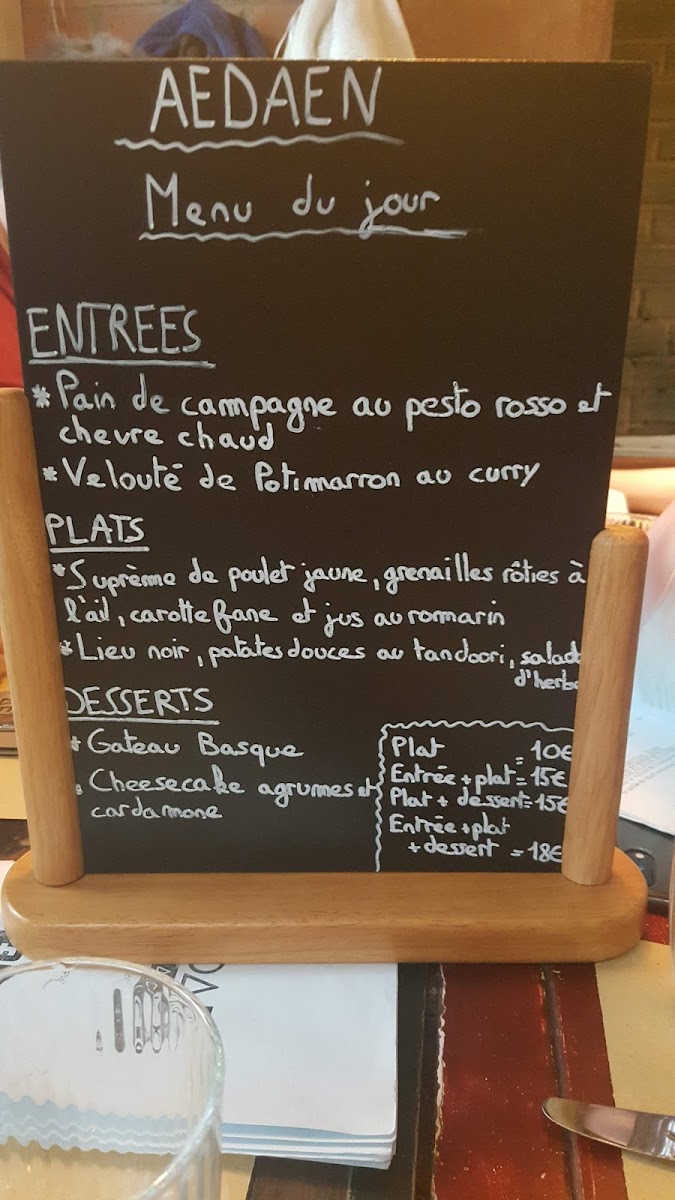 AEDAEN
Menu du jour
ENTREES
* Pain de campagne au pesto rosso et
chevre chaud
* Velouté de Potimarron au curry
PLATS
* Suprème de poulet jaune, grenailles rôties à
l'ail, carotte fane et jus au romarin
* Lieu noir, patates douces au tandoori, salade
d'herbe
DESSERTS
* Gateau Basque
* Cheesecake agrumes et
cardamone
Plat = 10€
Entrée + plat = 15€
Plat + dessert = 15€
Entrée + plat
+ dessert = 18€